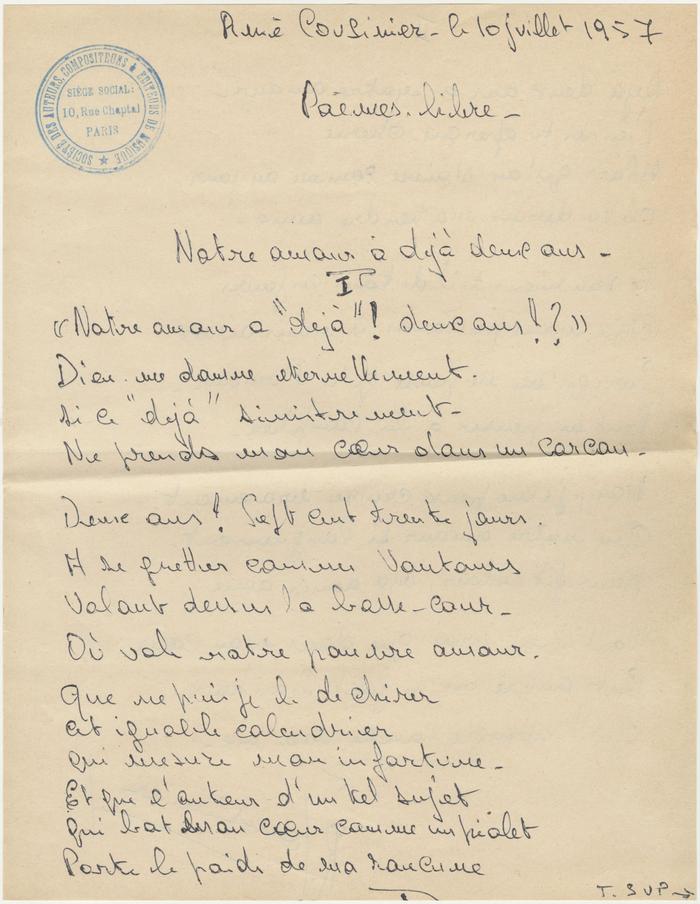 René Cousinier - le 10 juillet 1957
SOCIÉTÉ DES AUTEURS, COMPOSITEURS ★ EDITEURS DE MUSIQUE ★
SIÈGE SOCIAL:
10, Rue Chaptal
PARIS
Poèmes. libre -
Notre amour a déjà deux ans -
I
« Notre amour a "déjà" ! deux ans !? »
Dieu me damne eternellement.
Si ce "déjà" sinistrement -
Ne prends mon cœur dans un carcan -
Deux ans ! Sept cent trente jours.
A se guetter comme Vautours
Volant dessus la basse-cour -
Où vole notre pauvre amour.
Que ne puis je le dechirer
cet ignoble calendrier
qui mesure mon infortune -
Et que l'auteur d'un tel sujet
qui bat mon cœur comme un piolet
Porte le poids de ma rancune
T. SVP →